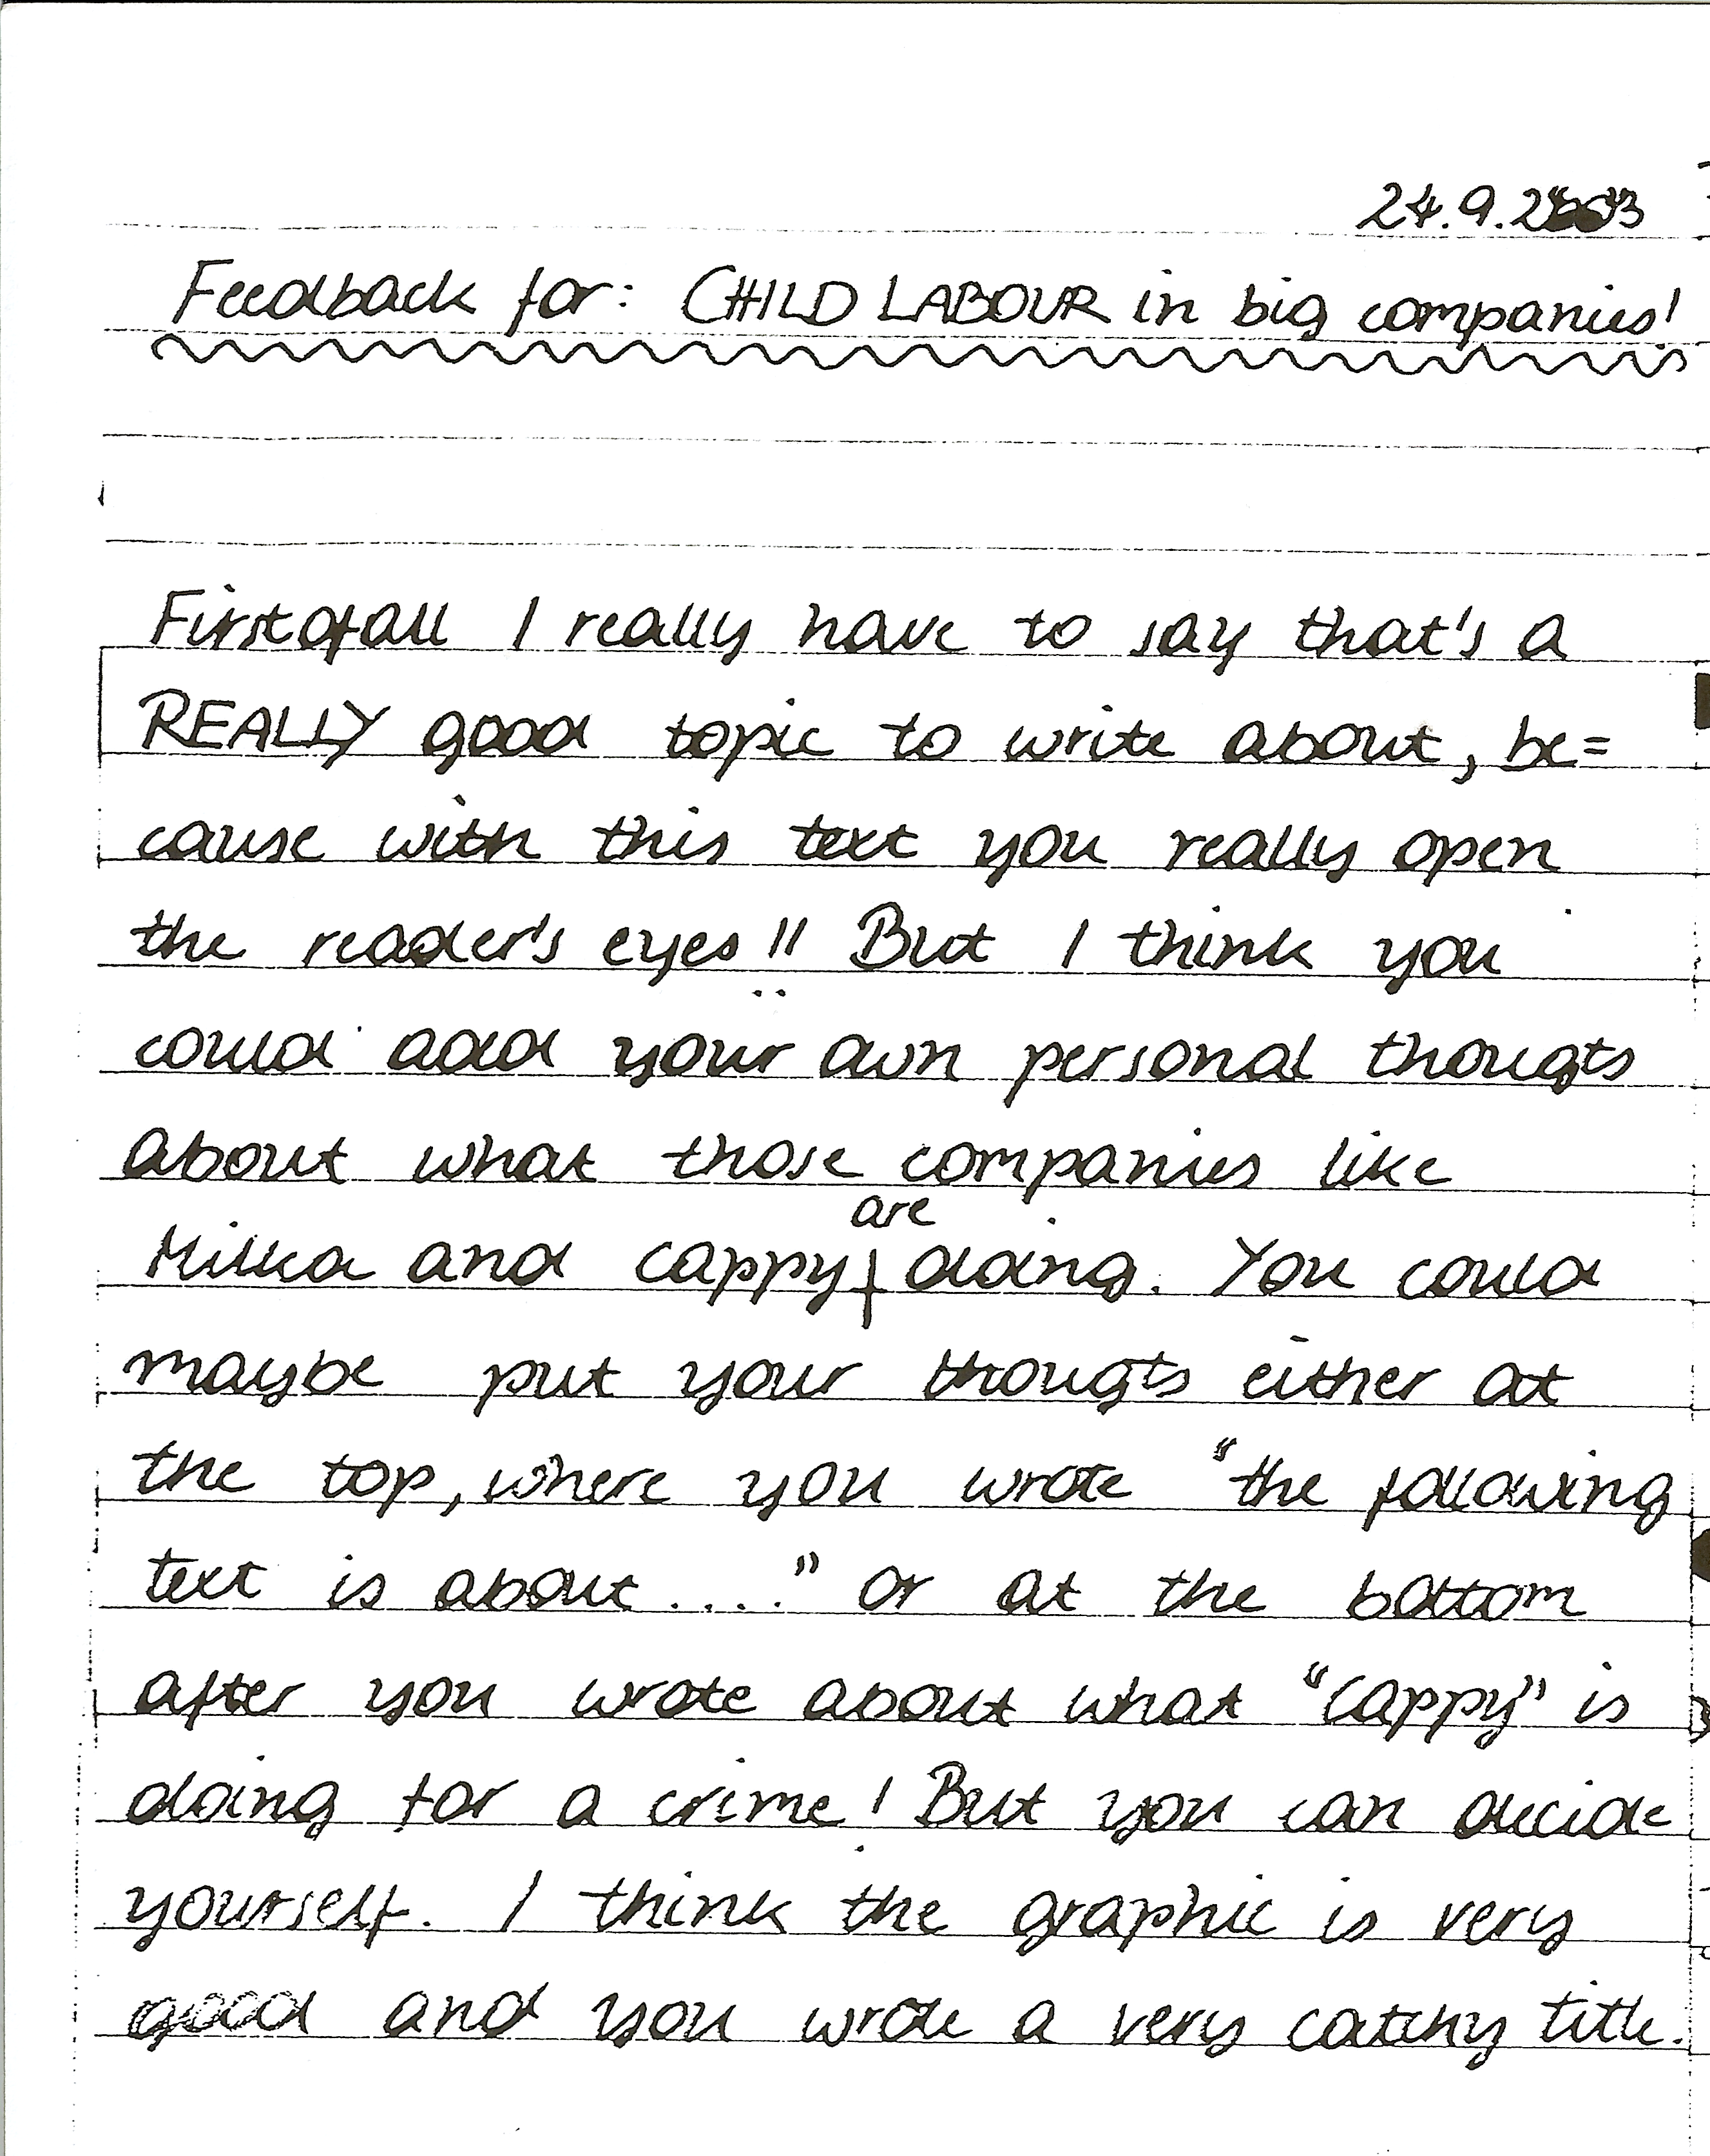 24.9.
Feedback for: CHILD LABOUR in big companies!
First of all I really have to say that's a
REALLY good topic to write about, be=
cause with this text you really open
the reader's eyes!! But I think you
could add your own personal thougts
about what those companies like
are
Milka and cappy doing. You could
maybe put your thougts either at
the top, where you wrote "the following
text is about...." or at the bottom
after you wrote about what "cappy" is
doing for a crime! But you can decide
yourself. I think the graphic is very
good and you wrote a very catchy title.